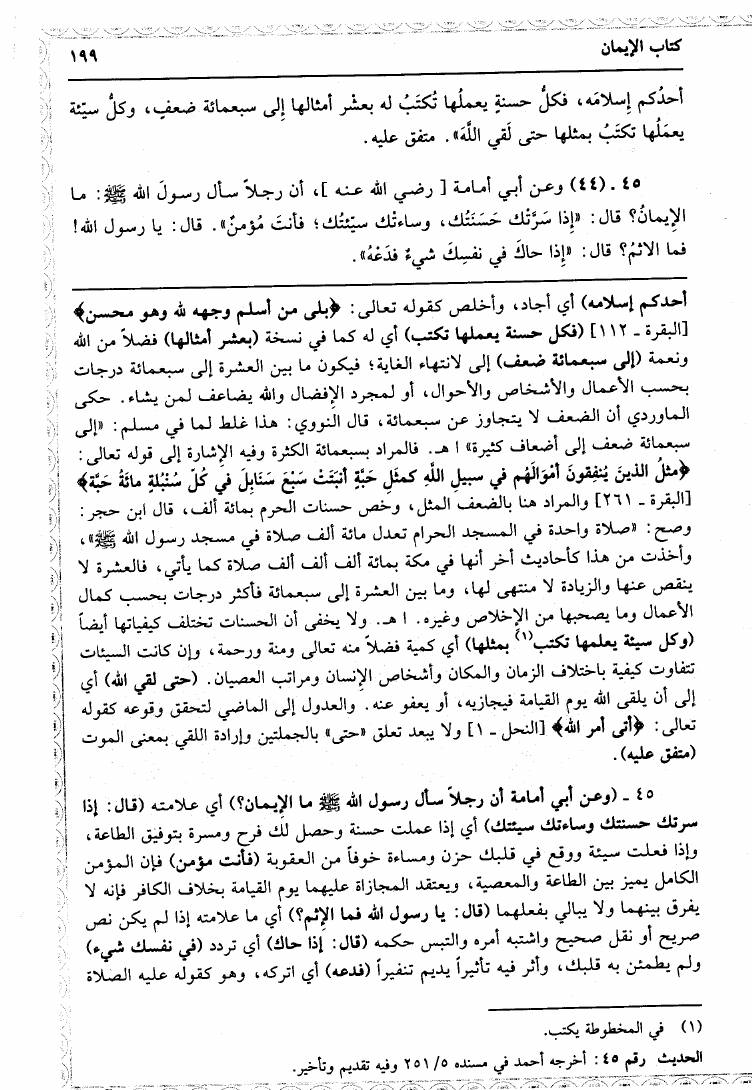 كتاب الإيمان ١٩٩
أحدُكم إِسلامَه، فكلُّ حسنةٍ يعملُها تُكتَبُ له بعشْر أمثالها إِلى سبعمائة ضعفٍ، وكلُّ سيّئة
يعمَلُها تكتَبُ بمثلها حتى لَقي اللَّهَ». متفق عليه.
٤٥ ـ (٤٤) وعـن أبي أمامـة [ رضـي الله عـنـه ]، أن رجـلاً سـأل رسـولَ الله ﷺ: مـا
الإِيمانُ؟ قال: «إِذا سَرَّتْك حَسَنَتُك، وساءتْك سيّئتُك؛ فأنتَ مُؤمنٌ». قال: يا رسول الله!
فما الاثمُ؟ قال: «إِذا حاكَ في نفسِكَ شيءٌ فدَعْهُ».
أحدكم إسلامه) أي أجاد، وأخلص كقوله تعالى: ﴿بلى من أسلم وجهه لله وهو محسن﴾
[البقرة ـ ١١٢] (فكل حسنة يعملها تكتب) أي له كما في نسخة (بعشر أمثالها) فضلاً من الله
ونعمة (إلى سبعمائة ضعف) إلى لانتهاء الغاية؛ فيكون ما بين العشرة إلى سبعمائة درجات
بحسب الأعمال والأشخاص والأحوال، أو لمجرد الإفضال والله يضاعف لمن يشاء. حكى
الماوردي أن الضعف لا يتجاوز عن سبعمائة، قال النووي: هذا غلط لما في مسلم: «إلى
سبعمائة ضعف إلى أضعاف كثيرة» ا هـ. فالمراد بسبعمائة الكثرة وفيه الإشارة إلى قوله تعالى:
﴿مثلُ الذينَ يُنفِقونَ أمْوَالَهُم في سبيلِ اللَّهِ كمثَلِ حَبَّةٍ أنبَتَتْ سَبْعَ سَنَابِلَ في كُلّ سُنْبُلَةٍ مائَةُ حَبَّة﴾
[البقرة ـ ٢٦١] والمراد هنا بالضعف المثل، وخص حسنات الحرم بمائة ألف، قال ابن حجر:
وصح: «صلاة واحدة في المسجد الحرام تعدل مائة ألف صلاة في مسجد رسول الله ﷺ»،
وأخذت من هذا كأحاديث أخر أنها في مكة بمائة ألف ألف ألف صلاة كما يأتي، فالعشرة لا
ينقص عنها والزيادة لا منتهى لها، وما بين العشرة إلى سبعمائة فأكثر درجات بحسب كمال
الأعمال وما يصحبها من الإخلاص وغيره. ا هـ. ولا يخفى أن الحسنات تختلف كيفياتها أيضاً
(وكل سيئة يعلمها تكتب(١) بمثلها) أي كمية فضلاً منه تعالى ومنة ورحمة، وإن كانت السيئات
تتفاوت كيفية باختلاف الزمان والمكان وأشخاص الإنسان ومراتب العصيان. (حتى لقي الله) أي
إلى أن يلقى الله يوم القيامة فيجازيه، أو يعفو عنه. والعدول إلى الماضي لتحقق وقوعه كقوله
تعالى: ﴿أتى أمر الله﴾ [النحل ـ ١] ولا يبعد تعلق «حتى» بالجملتين وإرادة اللقي بمعنى الموت
(متفق عليه).
٤٥ ـ (وعن أبي أمامة أن رجلاً سأل رسول الله ﷺ ما الإيمان؟) أي علامته (قال: إذا
سرتك حسنتك وساءتك سيئتك) أي إذا عملت حسنة وحصل لك فرح ومسرة بتوفيق الطاعة،
وإذا فعلت سيئة ووقع في قلبك حزن ومساءة خوفاً من العقوبة (فأنت مؤمن) فإن المؤمن
الكامل يميز بين الطاعة والمعصية، ويعتقد المجازاة عليهما يوم القيامة بخلاف الكافر فإنه لا
يفرق بينهما ولا يبالي بفعلهما (قال: يا رسول الله فما الإثم؟) أي ما علامته إذا لم يكن نص
صريح أو نقل صحيح واشتبه أمره والتبس حكمه (قال: إذا حاك) أي تردد (في نفسك شيء)
ولم يطمئن به قلبك، وأثر فيه تأثيراً يديم تنفيراً (فدعه) أي اتركه، وهو كقوله عليه الصلاة
(١) في المخطوطة يكتب.
الحديث رقم ٤٥: أخرجه أحمد في مسنده ٢٥١/٥ وفيه تقديم وتأخير.